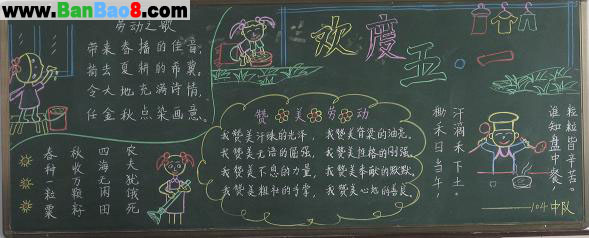 www.BanBao8.com
劳动之歌
带来春播的佳音,
摘去夏耕的希冀,
令大地充满诗情,
任金秋点染画意。
欢度五·一
赞美劳动
我赞美汗珠的光泽,我赞美脊梁的油亮。
我赞美无语的倔强,我赞美性格的刚强。
我赞美不息的力量,我赞美奉献的默默。
我赞美粗壮的手掌,我赞美心地的善良。
春种一粒粟
秋收万颗籽
四海无闲田
农夫犹饿死
锄禾日当午,
汗滴禾下土。
谁知盘中餐,
粒粒皆辛苦。
——104中队